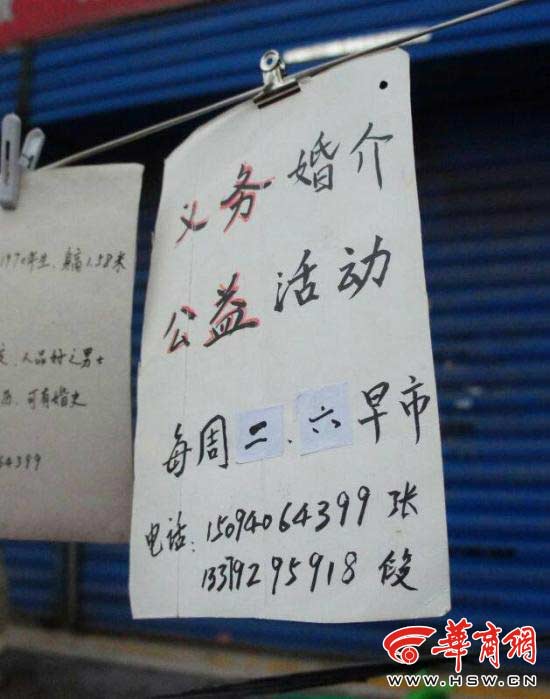 义务婚介
公益活动
每周二、六早市
电话:15094064399 张
13379295918 段
1970年生、身高1.58米
、人品好之男士
可有婚史
64399
华商网
WWW.HSW.CN